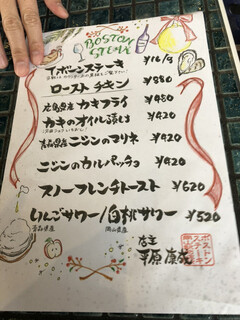 BOSTON
STEAK
リボンステーキ ¥16/g
ローストチキン ¥980
広島県産 カキフライ ¥480
カキのオイル漬け ¥420
青森県産 ニシンのマリネ ¥420
ニシンのカルパッチョ ¥420
スノーフレンチトースト ¥620
りんごサワー/白桃サワー ¥520
青森県産 岡山県産
店主
平原